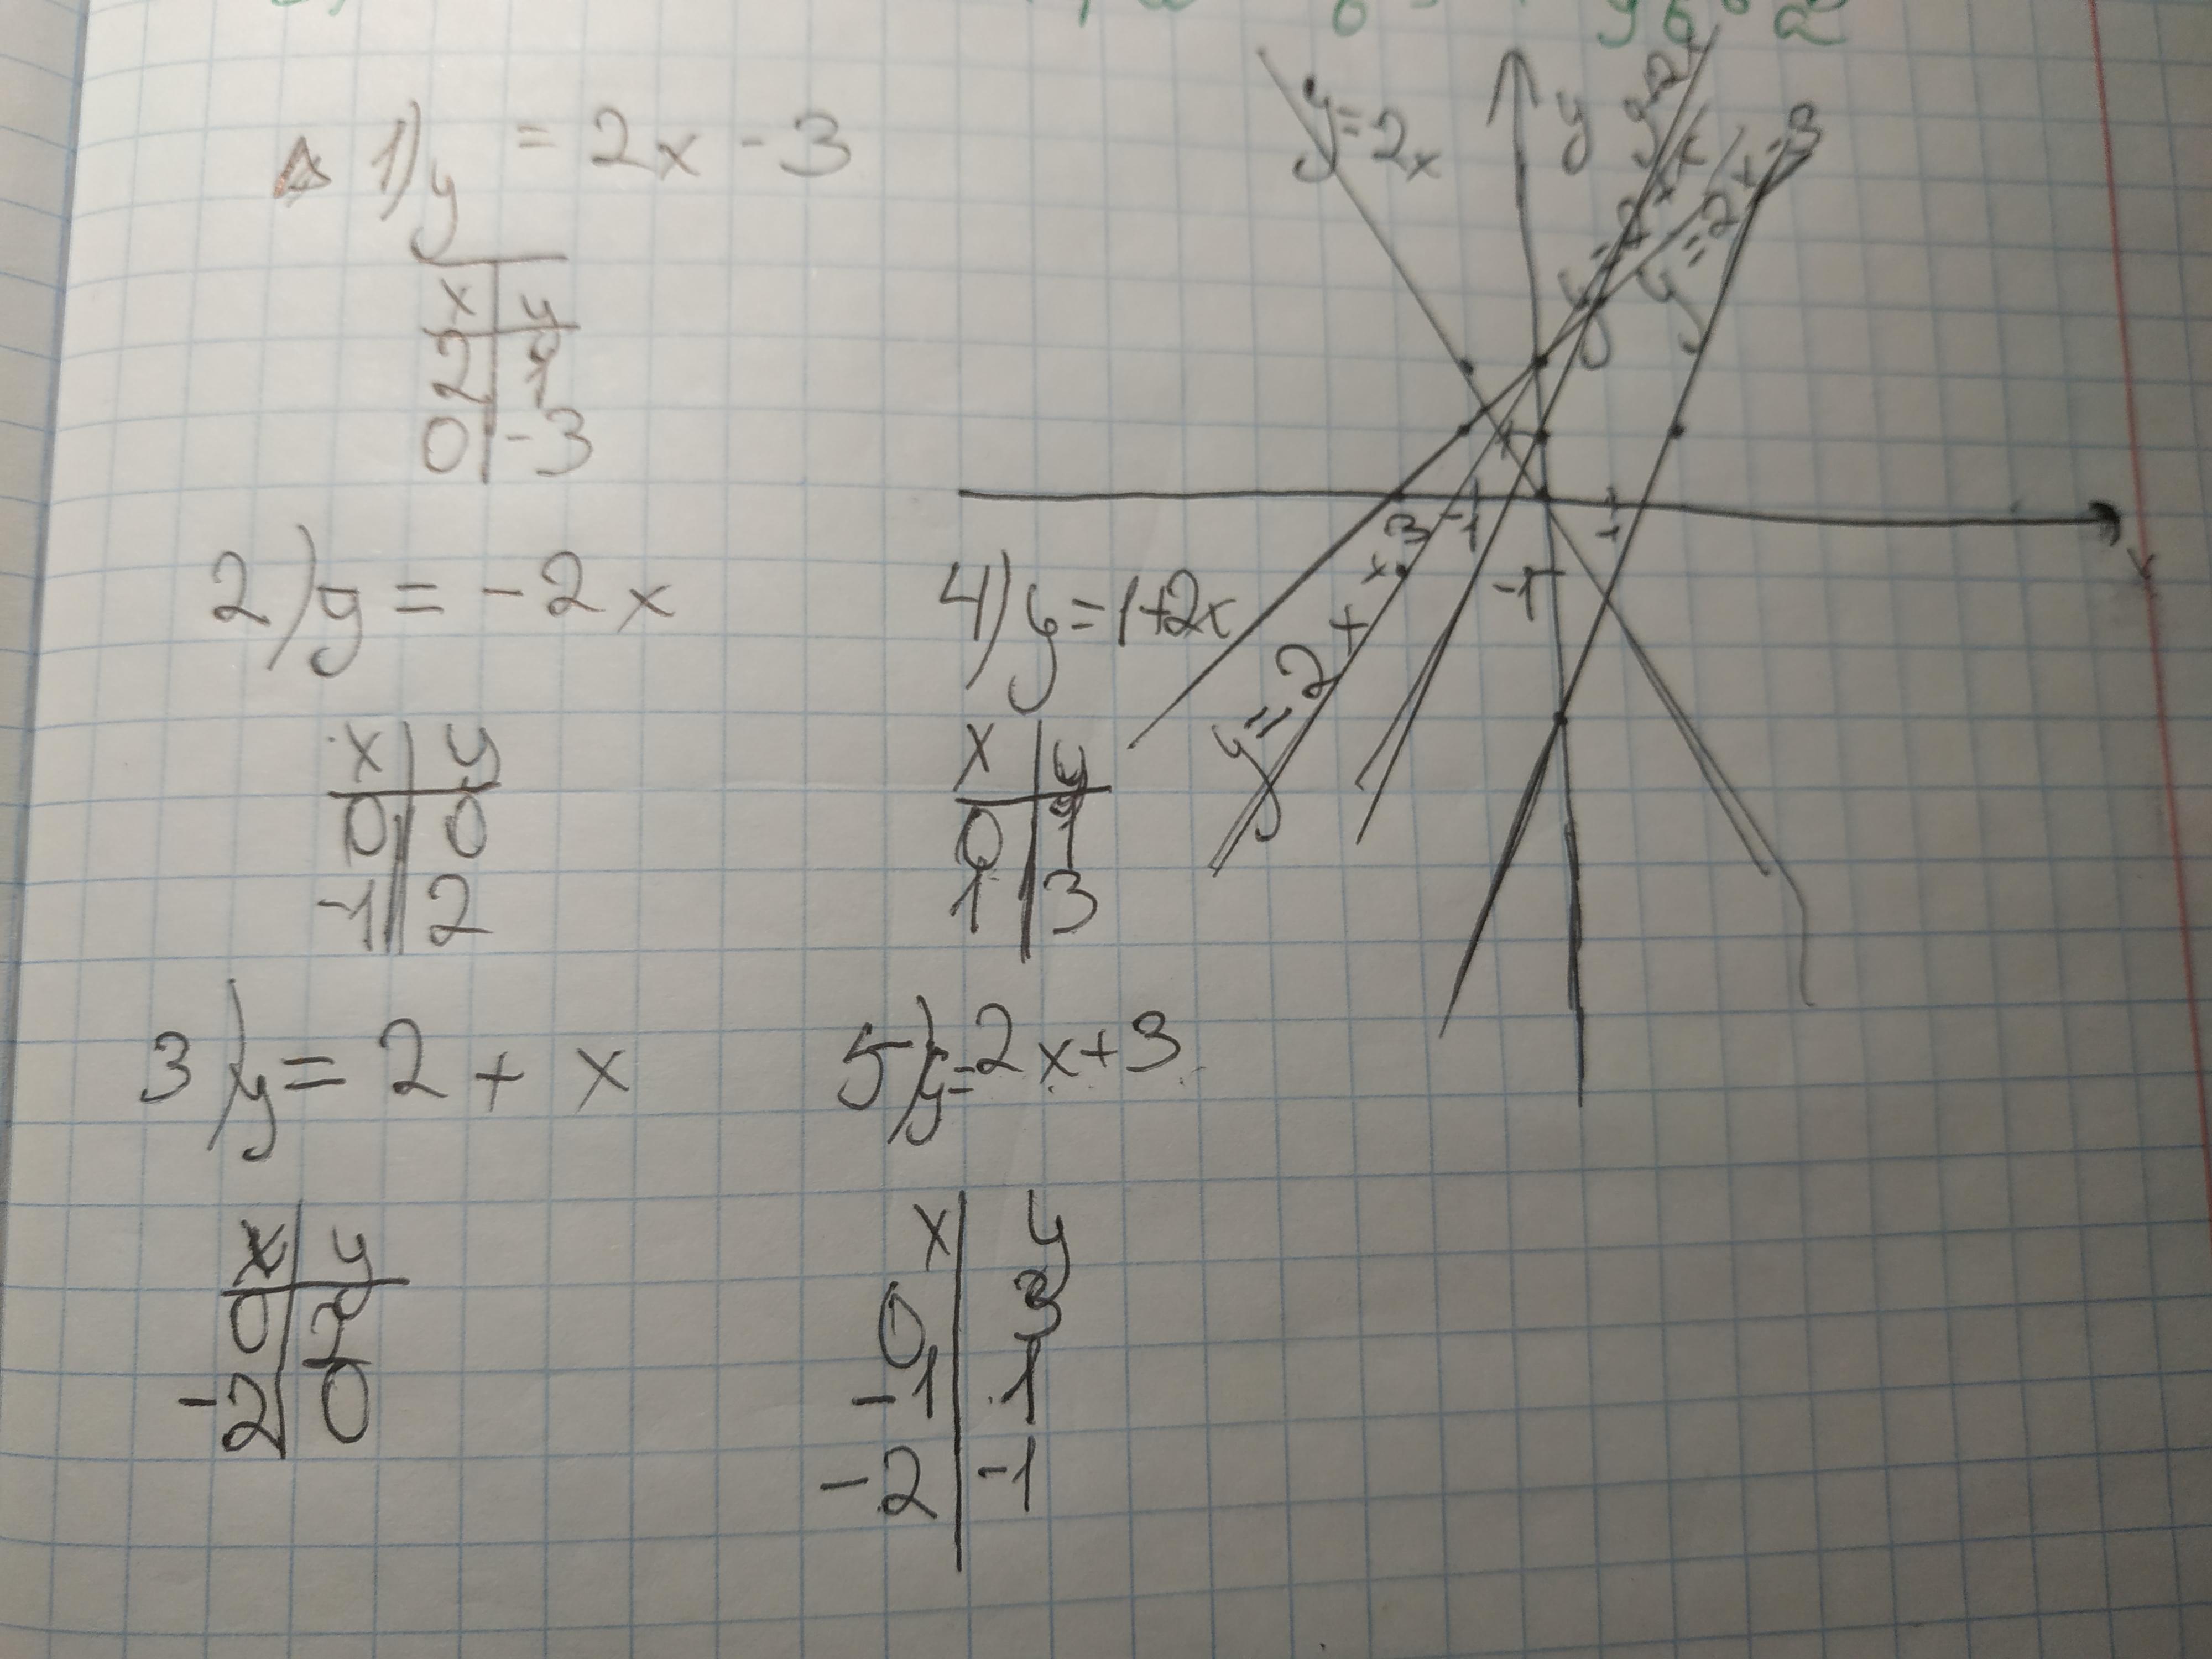 1) y = 2x - 3
x y
2 1
0 -3
2) y = -2x
x y
0 0
-1 2
3) y = 2 + x
x y
0 2
-2 0
4) y = 1+2x
x y
0 1
1 3
5) y = 2x+3
x y
0 3
-1 1
-2 -1
y=2x
y
y=2x-3
-1
1
-1
3
y=2+x
x